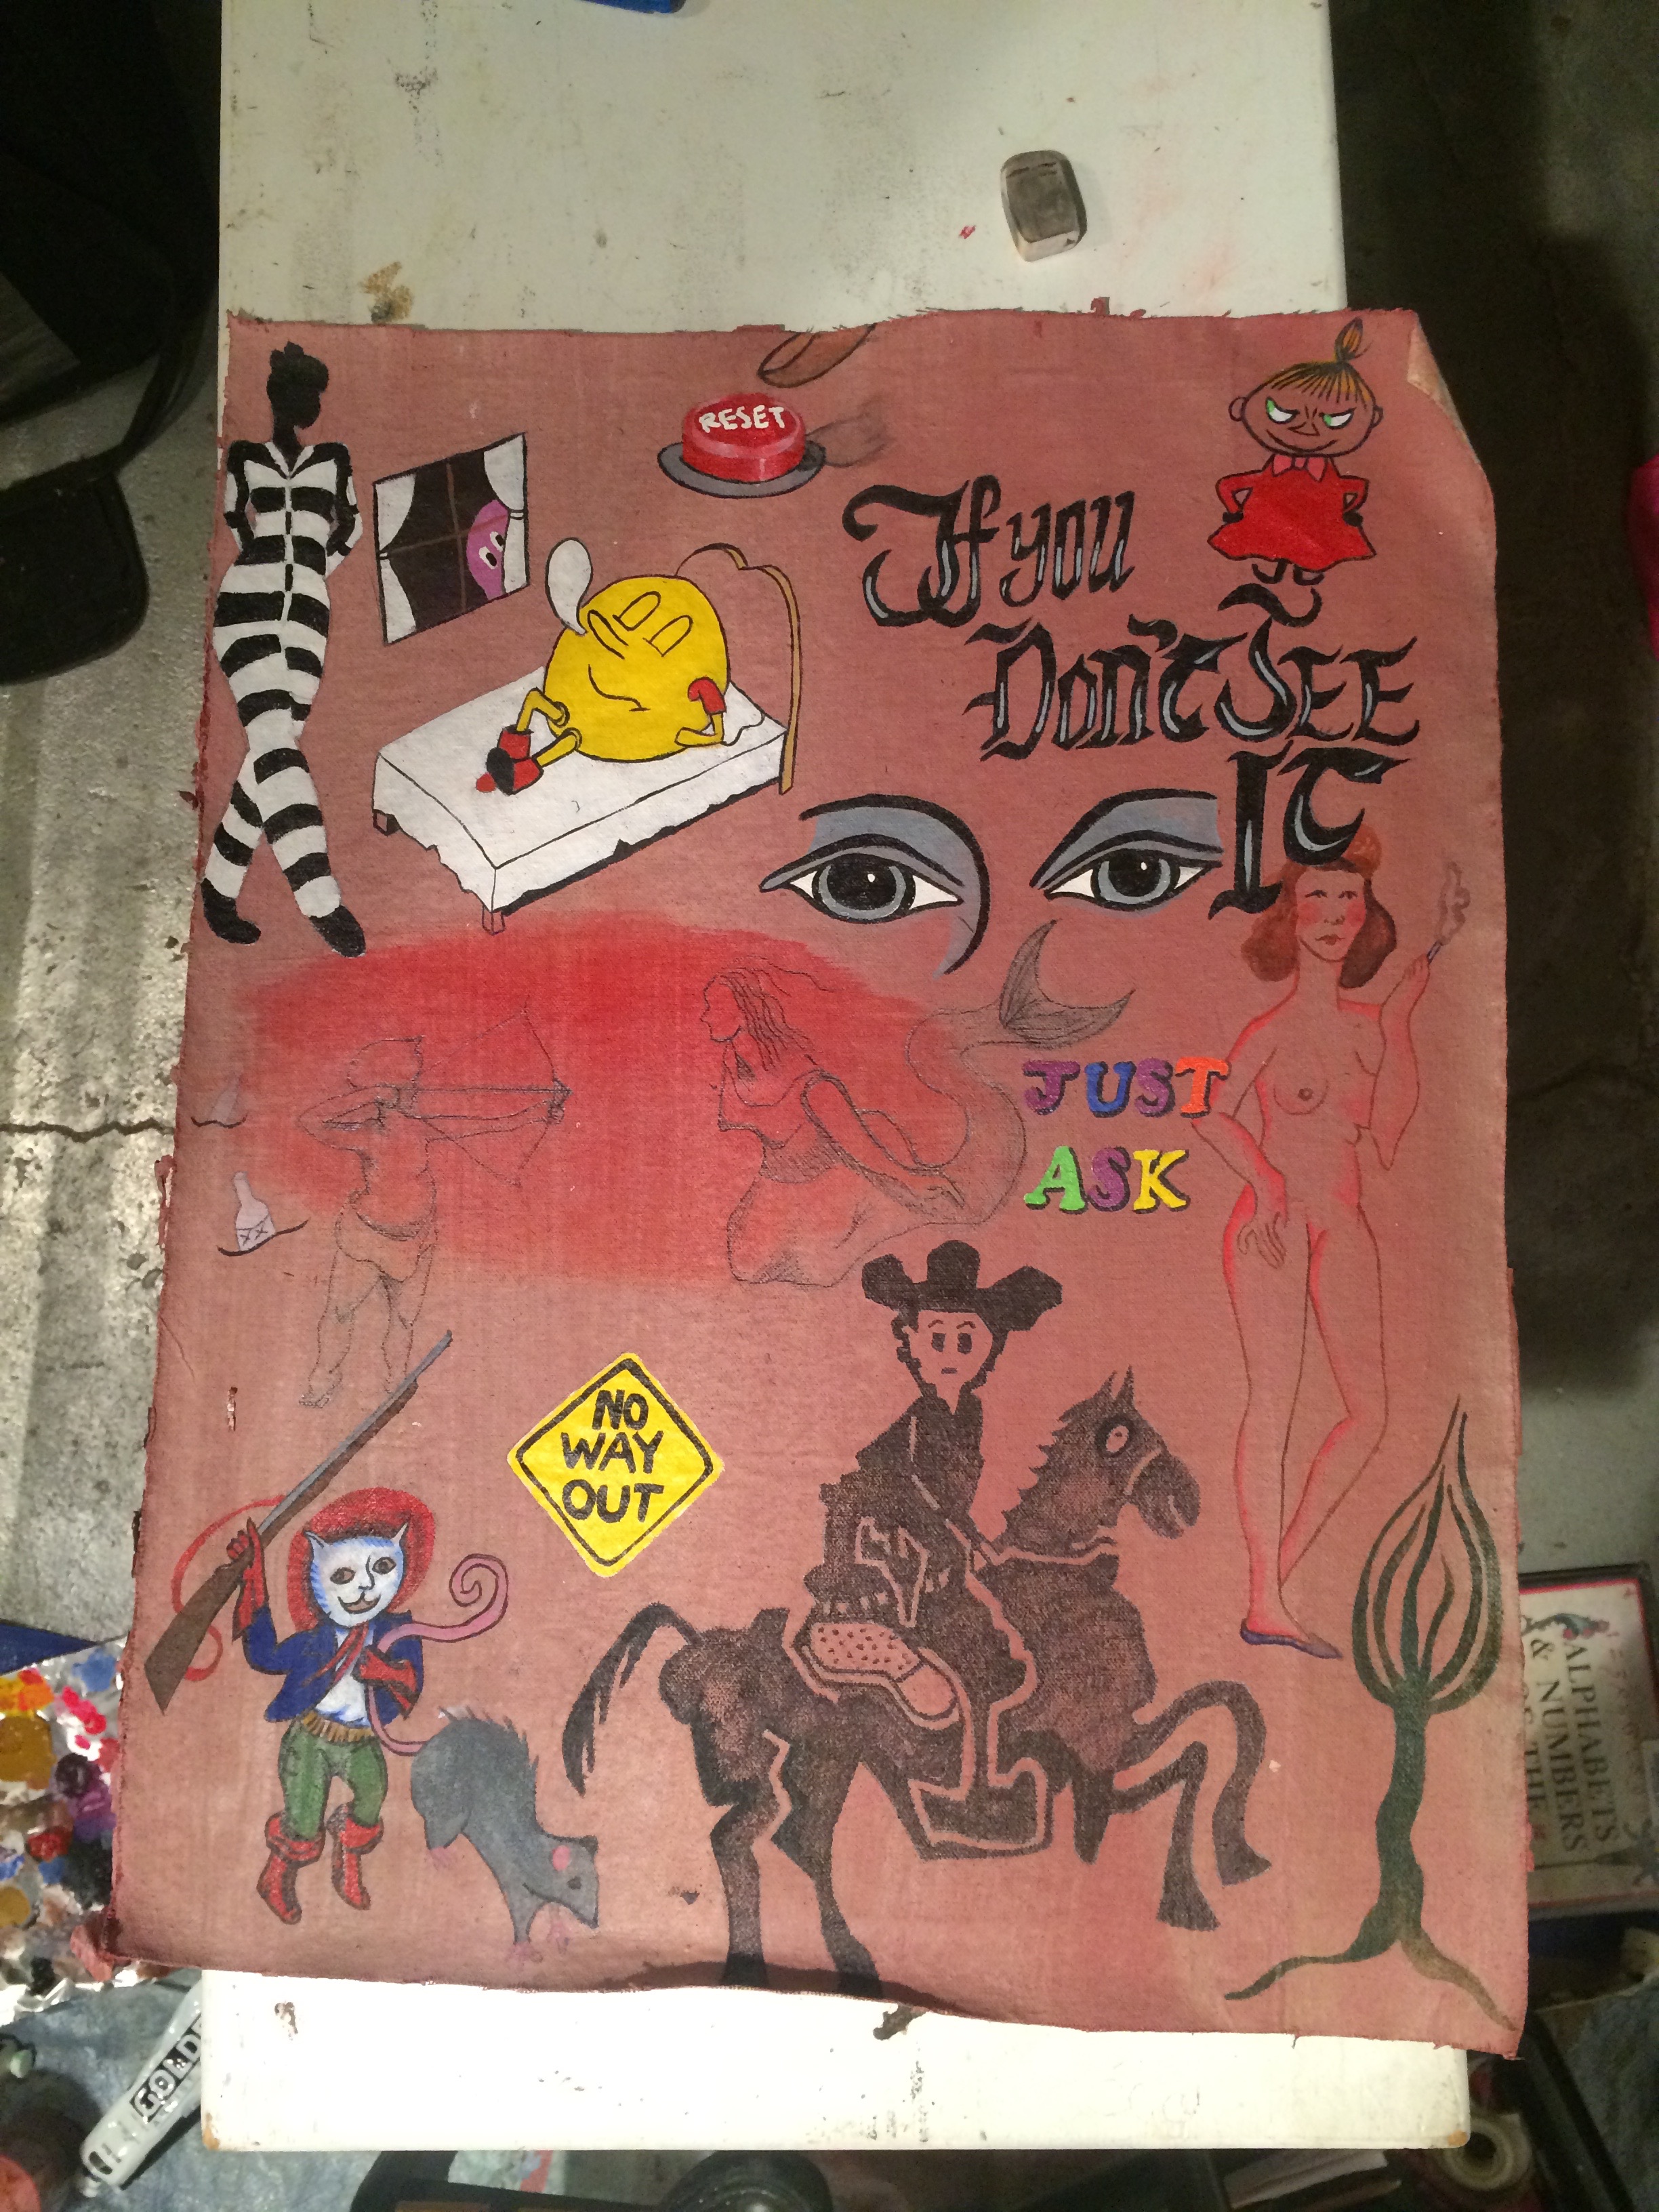 RESET
If you
Don't SEE
IT
JUST
ASK
NO
WAY
OUT
XX
ALPHABETS
& NUMBERS
OF THE
GOLDE